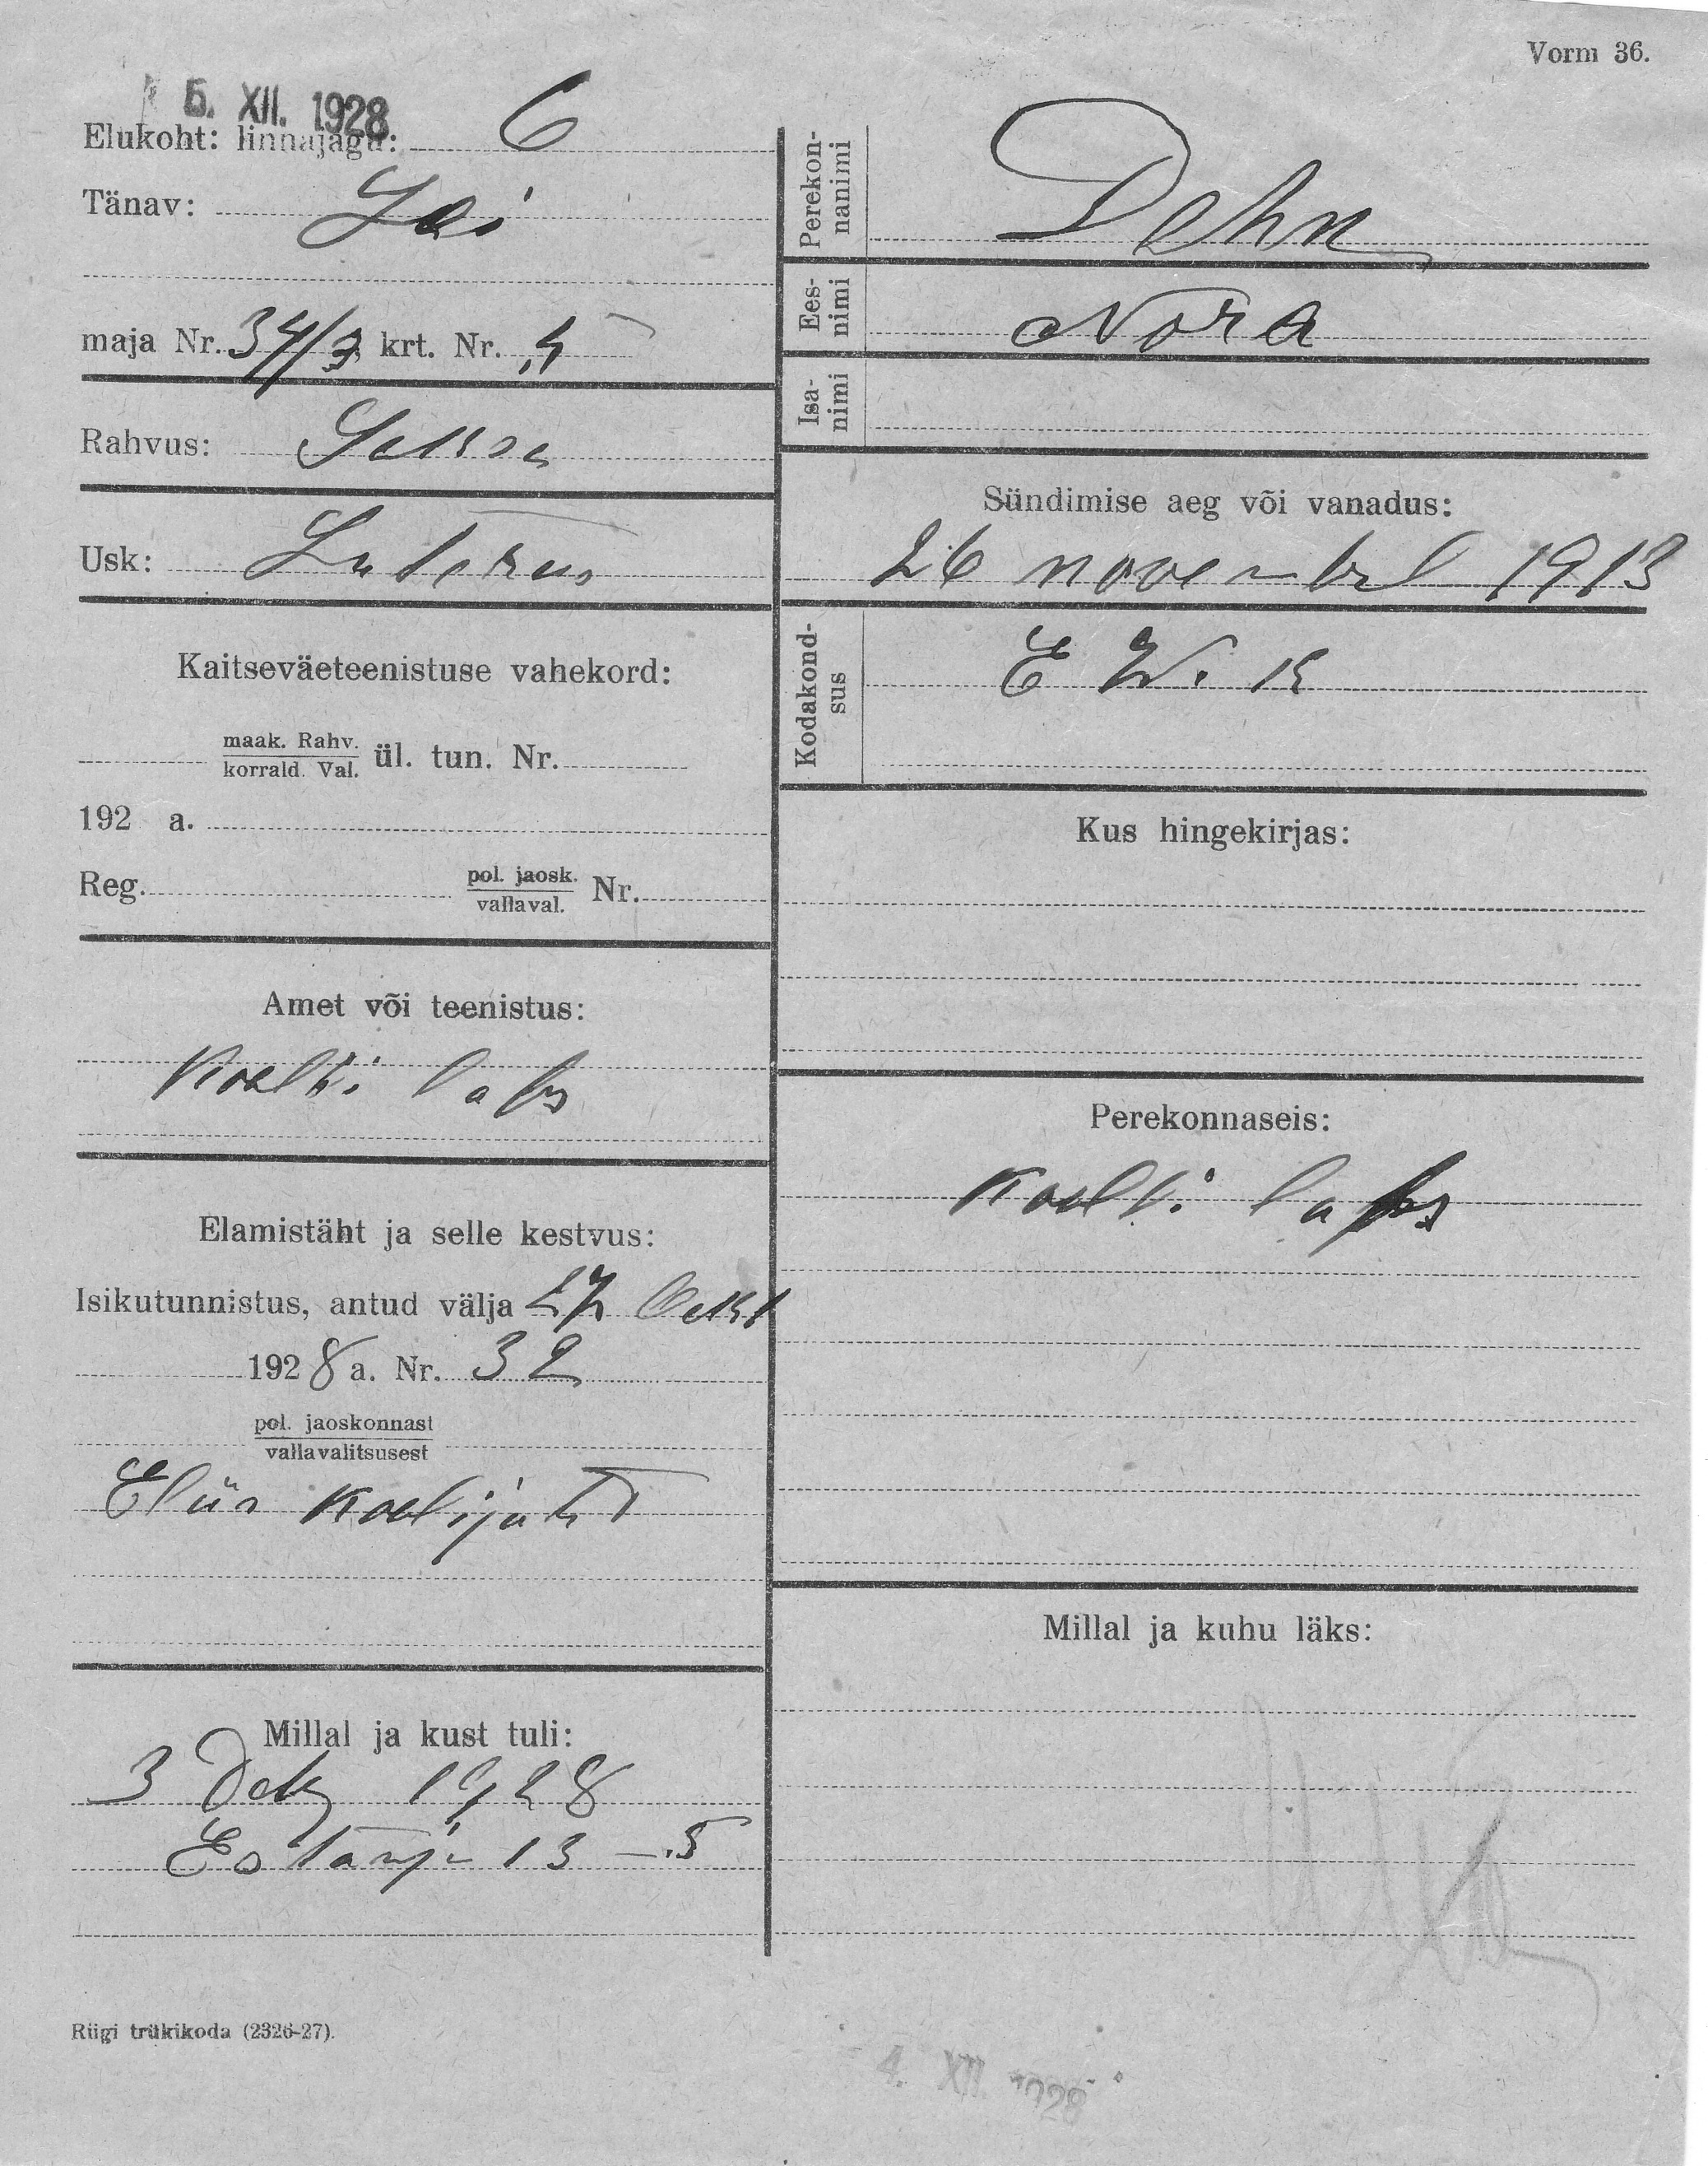 Vorm 36.
5. XII. 1928
Elukoht: linnajagu: 6
Tänav: Lai
maja Nr. 34/3 krt. Nr. 4
Rahvus: Saksa
Usk: Luterus
Kaitseväeteenistuse vahekord:
maak. Rahv.
korrald. Val. ül. tun. Nr.
192 a.
Reg. pol. jaosk.
vallaval. Nr.
Amet või teenistus:
Kooli laps
Elamistäht ja selle kestvus:
Isikutunnistus, antud välja 27 Okt
1928 a. Nr. 32
pol. jaoskonnast
vallavalitsusest
koolijuht
Millal ja kust tuli:
3 Dets 1928
13 - 5
Riigi trükikoda (2326-27).
Perekon-
nanimi
Dehn
Ees-
nimi
Nora
Isa-
nimi
Sündimise aeg või vanadus:
26 novembrel 1913
Kodakond-
sus
E W. K
Kus hingekirjas:
Perekonnaseis:
Kooli laps
Millal ja kuhu läks:
4. XII. 1928